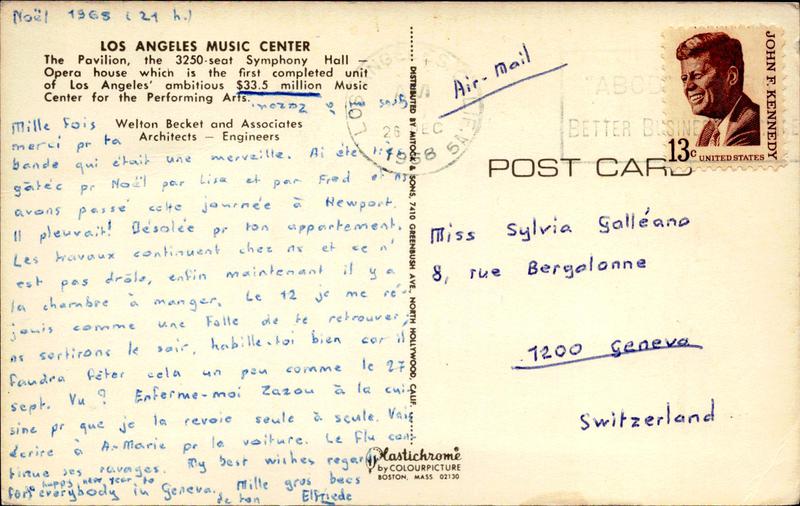 Noël 1968 (21 h.)
LOS ANGELES MUSIC CENTER
The Pavilion, the 3250-seat Symphony Hall –
Opera house which is the first completed unit
of Los Angeles' ambitious $33.5 million Music
Center for the Performing Arts.
Welton Becket and Associates
Architects – Engineers
Mille Fois
merci pr ta
bande qui était une merveille. Ai été très
gâtée pr Noël par Lisa et par Fred et ns
avons passé cette journée à Newport.
Il pleuvait! Désolée pr ton appartement.
Les travaux continuent chez ns et ce n'
est pas drôle, enfin maintenant il y a
la chambre à manger. Le 12 je me ré-
jouis comme une Folle de te retrouver,
ns sortirons le soir, habille-toi bien car il
Faudra Fêter cela un peu comme le 27
sept. Vu ? Enferme-moi Zazou à la cui
sine pr que je la revoie seule à seule. Vais
écrire à A-Marie pr la voiture. Le Flu con
tinue ses ravages. My best wishes regards
& happy new year to
for everybody in Geneva. Mille gros becs
de ton Elfriede
DISTRIBUTED BY MITOCK & SONS, 7410 GREENBUSH AVE., NORTH HOLLYWOOD, CALIF.
Plastichrome
by COLOURPICTURE
BOSTON, MASS 02130
LOS ANGELES, CALIF.
26 DEC
1968
Air-Mail
"ABCD
BETTER BUSINE
JOHN F. KENNEDY
13c UNITED STATES
POST CARD
Miss Sylvia Galléano
8, rue Bergalonne
1200 Geneva
Switzerland